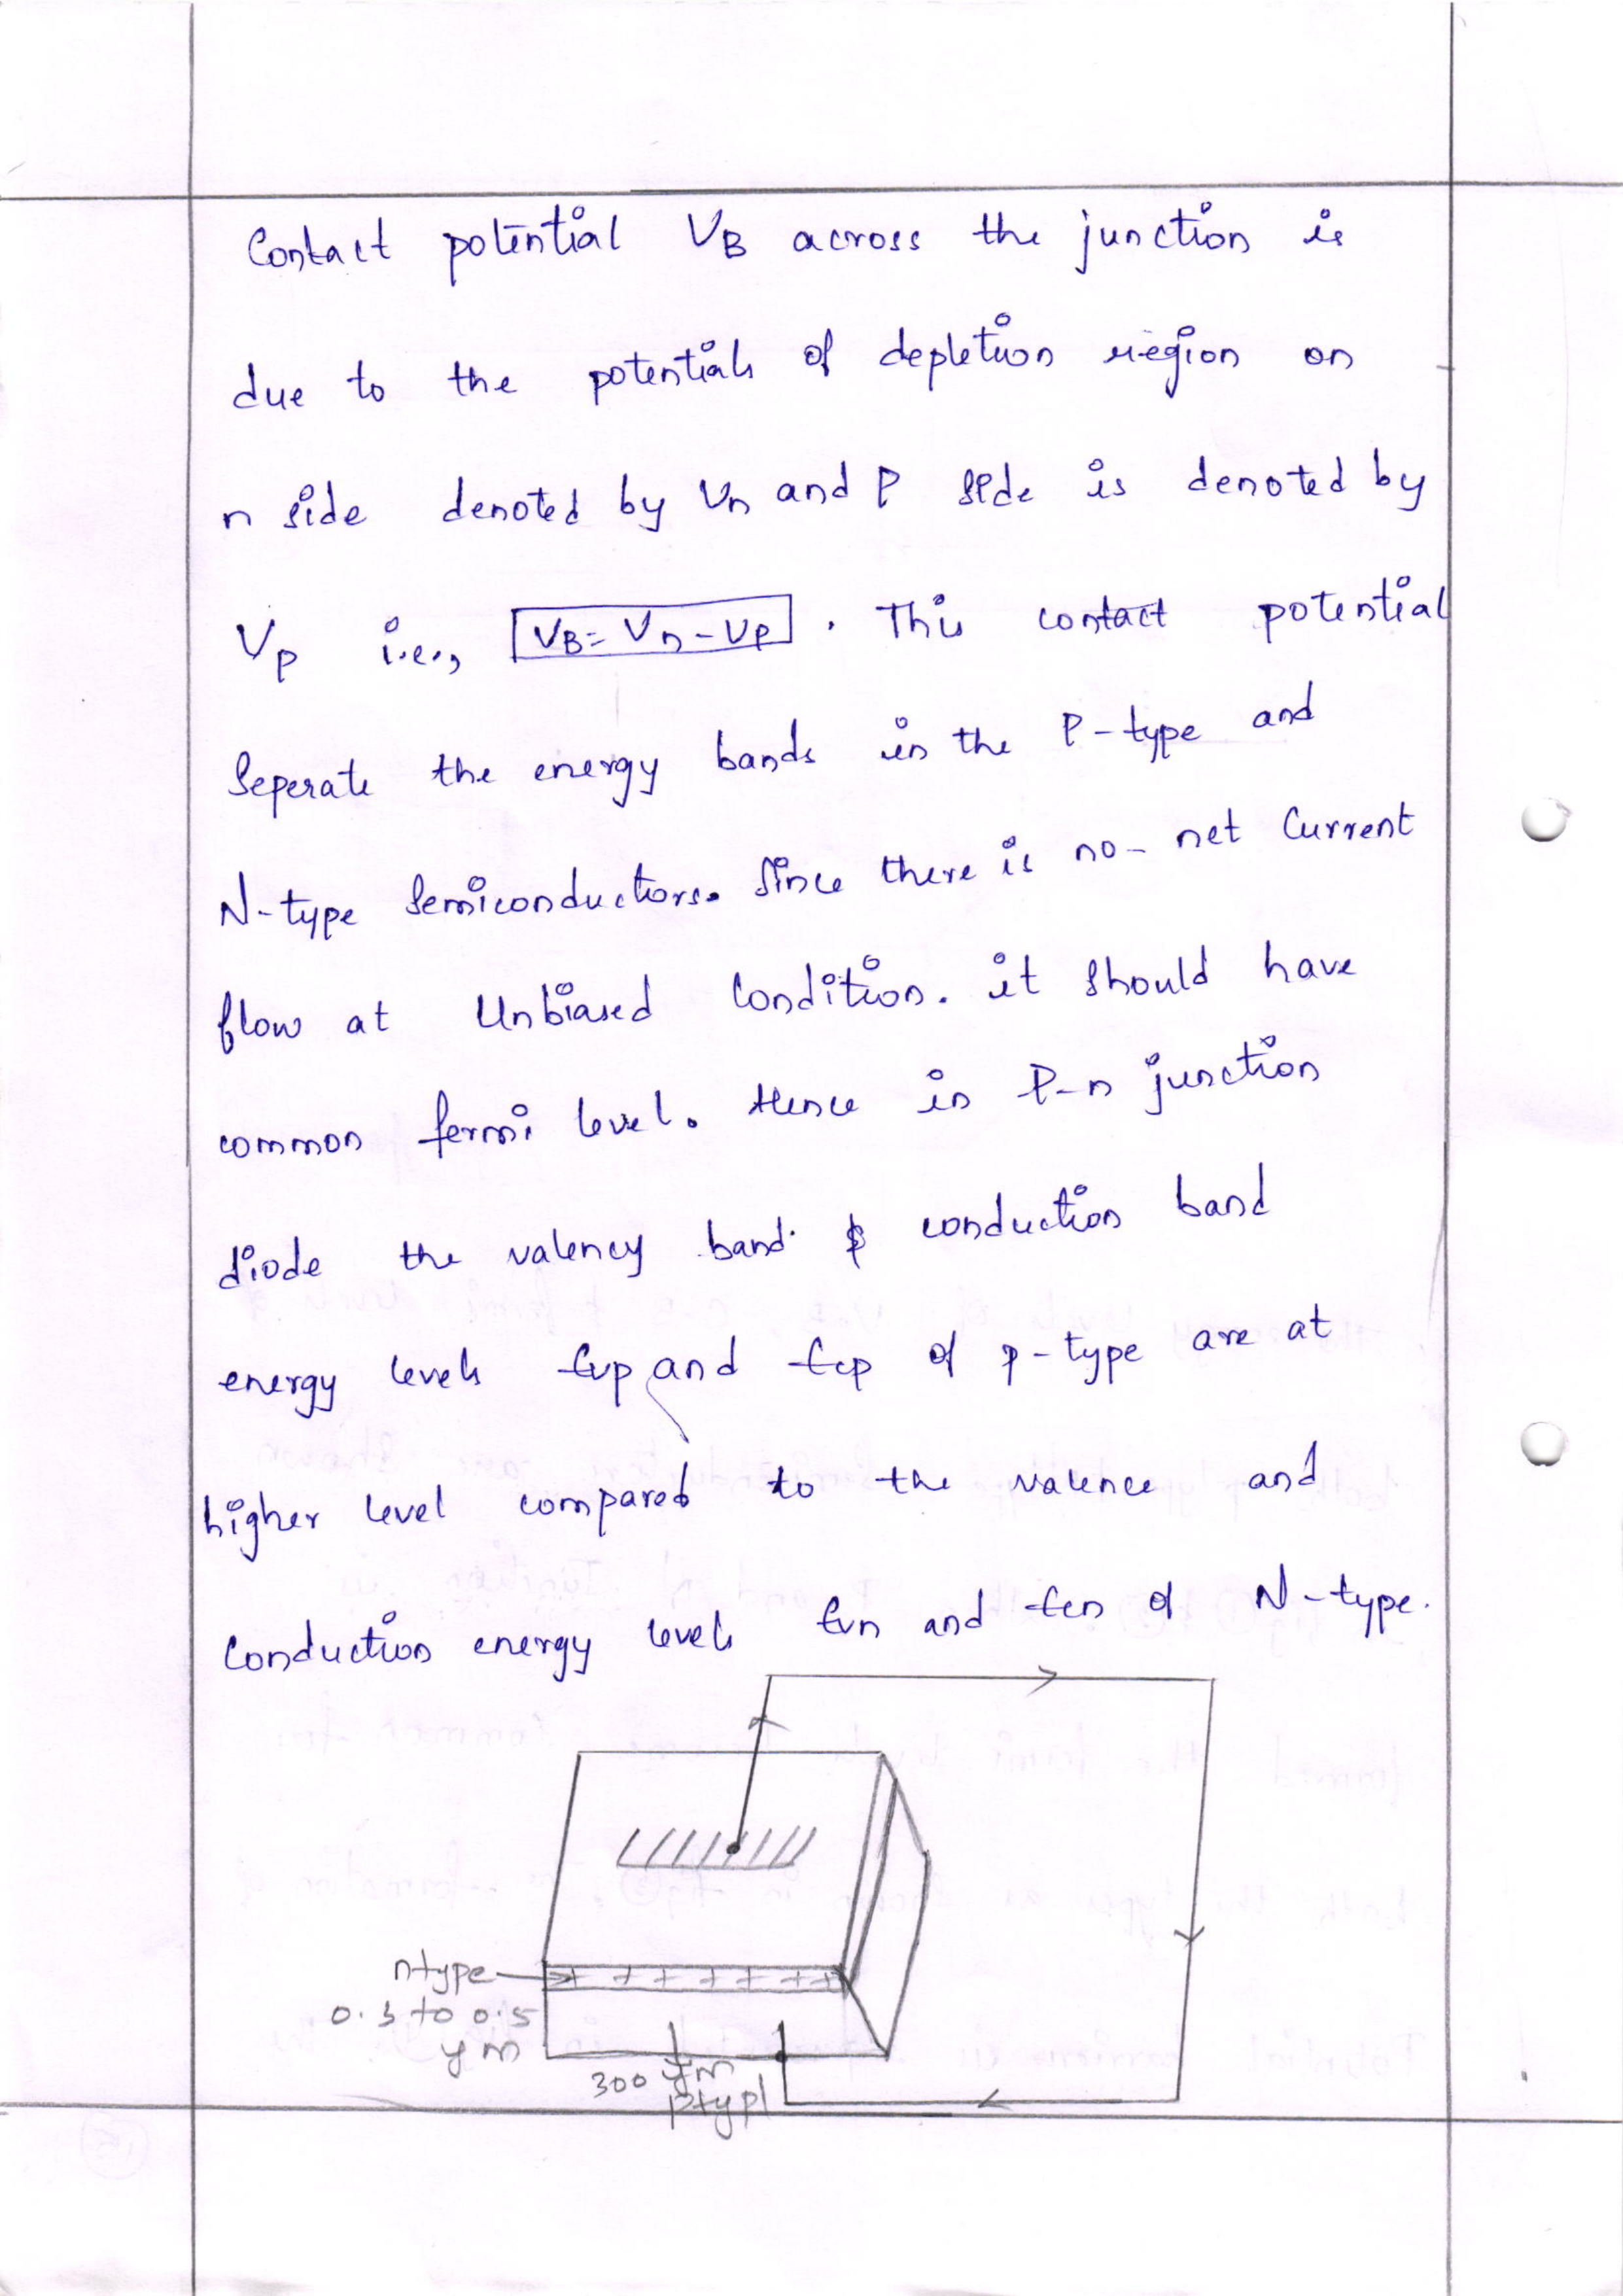 Contact potential VB across the junction is
due to the potentials of depletion region on
n side denoted by Vn and P side is denoted by
Vp i.e., VB = Vn - Vp . This contact potential
Seperate the energy bands in the P-type and
N-type Semiconductors. Since there is no-net Current
flow at Unbiased Condition. it should have
common fermi level. Hence in P-n junction
diode the valency band & conduction band
energy levels Evp and Ecp of p-type are at
higher level compared to the valence and
Conduction energy levels Evn and Ecn of N-type.
ntype
0.3 to 0.5
μm
300 μm
ptype